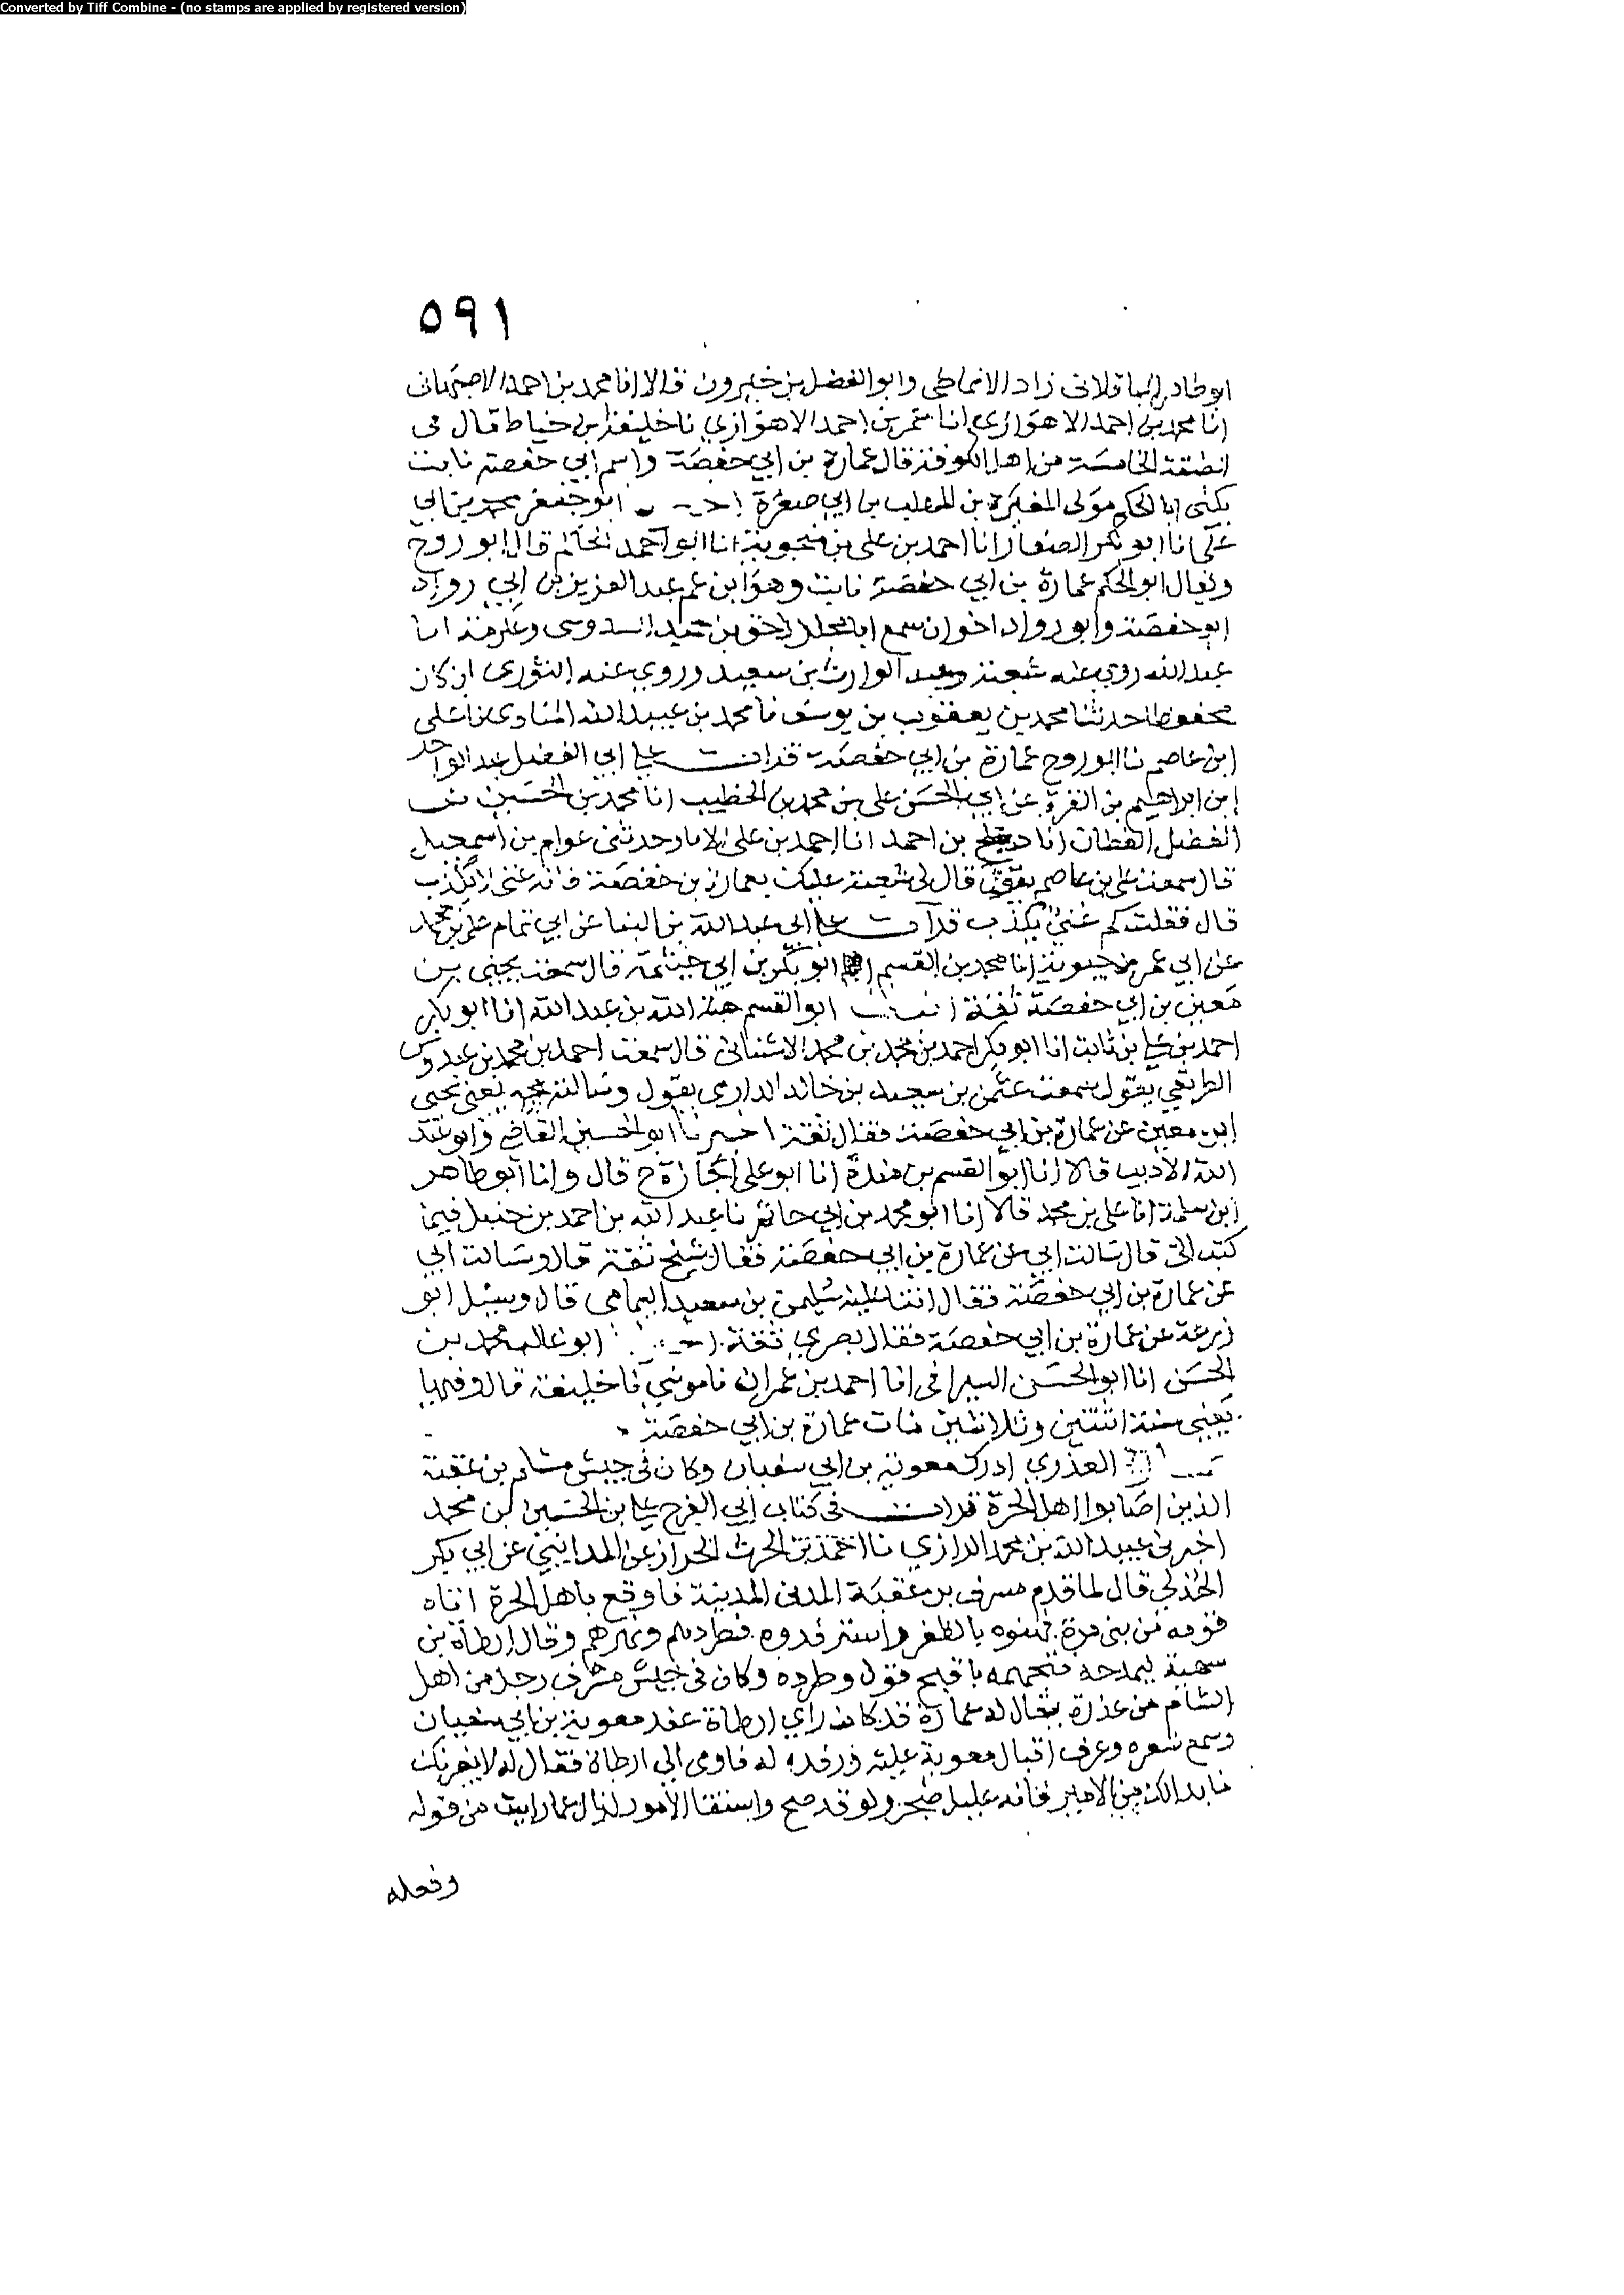 Converted by Tiff Combine - (no stamps are applied by registered version)
٥٩١
ابو طاهر الباقلانى زاد الانماطى وابو الفضل بن خيرون قالا انا محمد بن احمد الاصبهانى
انا محمد بن احمد الاهوازي انا عمر بن احمد الاهوازي نا خليفة بن خياط قال فى
الطبقة الخامسة من اهل الكوفة قال عمارة بن ابي حفصة واسم ابي حفصة نابت
يكنى ابا الحكم مولى المغيرة بن المهلب بن ابي صفرة ابو جعفر محمد بن ابي
على انا ابو بكر الصفار انا احمد بن على بن منجوية انا ابو احمد الحاكم قال ابو روح
ويقال ابو الحكم عمارة بن ابي حفصة نابت وهو ابن عم عبد العزيز بن ابي رواد
ابو حفصة وابو رواد اخوان سمع ابا مجلز لاحق بن حميد السدوسى وعكرمة ابا
عبد الله روي عنه شعبة وعبد الوارث بن سعيد وروي عنه الثورى ان كان
محفوظا حدثنا محمد بن يعقوب بن يوسف نا محمد بن عبيد الله المنادى نا على
ابن عاصم نا ابو روح عمارة بن ابي حفصة قرات على ابي الفضل عبد الواحد
ابن ابراهيم بن القرة عن ابي الحسن على بن محمد بن الخطيب انا محمد بن الحسين بن
الفضل القطان انا دعلج بن احمد انا احمد بن على الابار حدثنى عوام بن اسمعيل
قال سمعت على بن عاصم يقول قال لى شعبة عليك بعمارة بن حفصة فانه غنى لا يكذب
قال فقلت كم غنى يكذب قرات على ابى عبد الله بن البنا عن ابي تمام على بن محمد
عن ابي عمر بن حيوية انا محمد بن القسم ابو بكر بن ابي خيثمة قال سمعت يحيى بن
معين بن ابي حفصة ثقة ابو القسم هبة الله بن عبد الله انا ابو بكر
احمد بن على بن ثابت انا ابو بكر احمد بن محمد بن محمد الاشنانى قال سمعت احمد بن محمد بن عبدوس
الطرايفي يقول سمعت عثمن بن سعيد بن خالد الدارمى يقول وسالته يعنى يحيى
ابن معين عن عمارة بن ابي حفصة فقال ثقة اخبرنا ابو الحسين القاضى وابو عبد
الله الاديب قالا انا ابو القسم بن مندة انا ابو على اجازة ح قال وانا ابو طاهر
ابن سلمة انا على بن محمد قالا انا ابو محمد بن ابي حاتم نا عبد الله بن احمد بن حنبل فيما
كتب الى قال سالت ابي عن عمارة بن ابي حفصة فقال شيخ ثقة قال وسالت ابي
عن عمارة بن ابي حفصة فقال سليمن بن سعيد اليمامى قال وسئل ابو
زرعة عن عمارة بن ابي حفصة فقال بصري ثقة ابو غالب محمد بن
الحسن انا ابو الحسن السيرافى انا احمد بن عمران نا موسى نا خليفة قال وفيها
يعنى سنة اثنتين وثلاثين مات عمارة بن ابي حفصة
العذري ادرك معوية بن ابي سفيان وكان فى جيش مسلم بن عقبة
الذين اصابوا اهل الحرة قرات فى كتاب ابي الفرج على بن الحسين بن محمد
اخبرنى عبيد الله بن محمد الرازي نا احمد بن الحرث الخراز عن المداينى عن ابي بكر
الهذلى قال لما قدم مسرف بن عقبة المدنى المدينة فاوقع باهل الحرة اتاه
قومه من بنى مرة فهنوه بالظفر واسترفدوه فطردهم ونهرهم وقال ارطاة بن
سهية ليمدحه فتجهمه باقبح قول وطرده وكان فى جيش مسرف رجل من اهل
الشام من عذرة يقال له عمارة قد كان راي ارطاة عند معوية بن ابي سفيان
وسمع شعره وعرف اقبال معوية عليه ورفده له فاومى الي ارطاة فقال له لا يغرنك
ما بدا لك من الامير فانه عليل ضجر ولو قد صح واستقامت الامور لزال عما رايت من قوله
وفعله